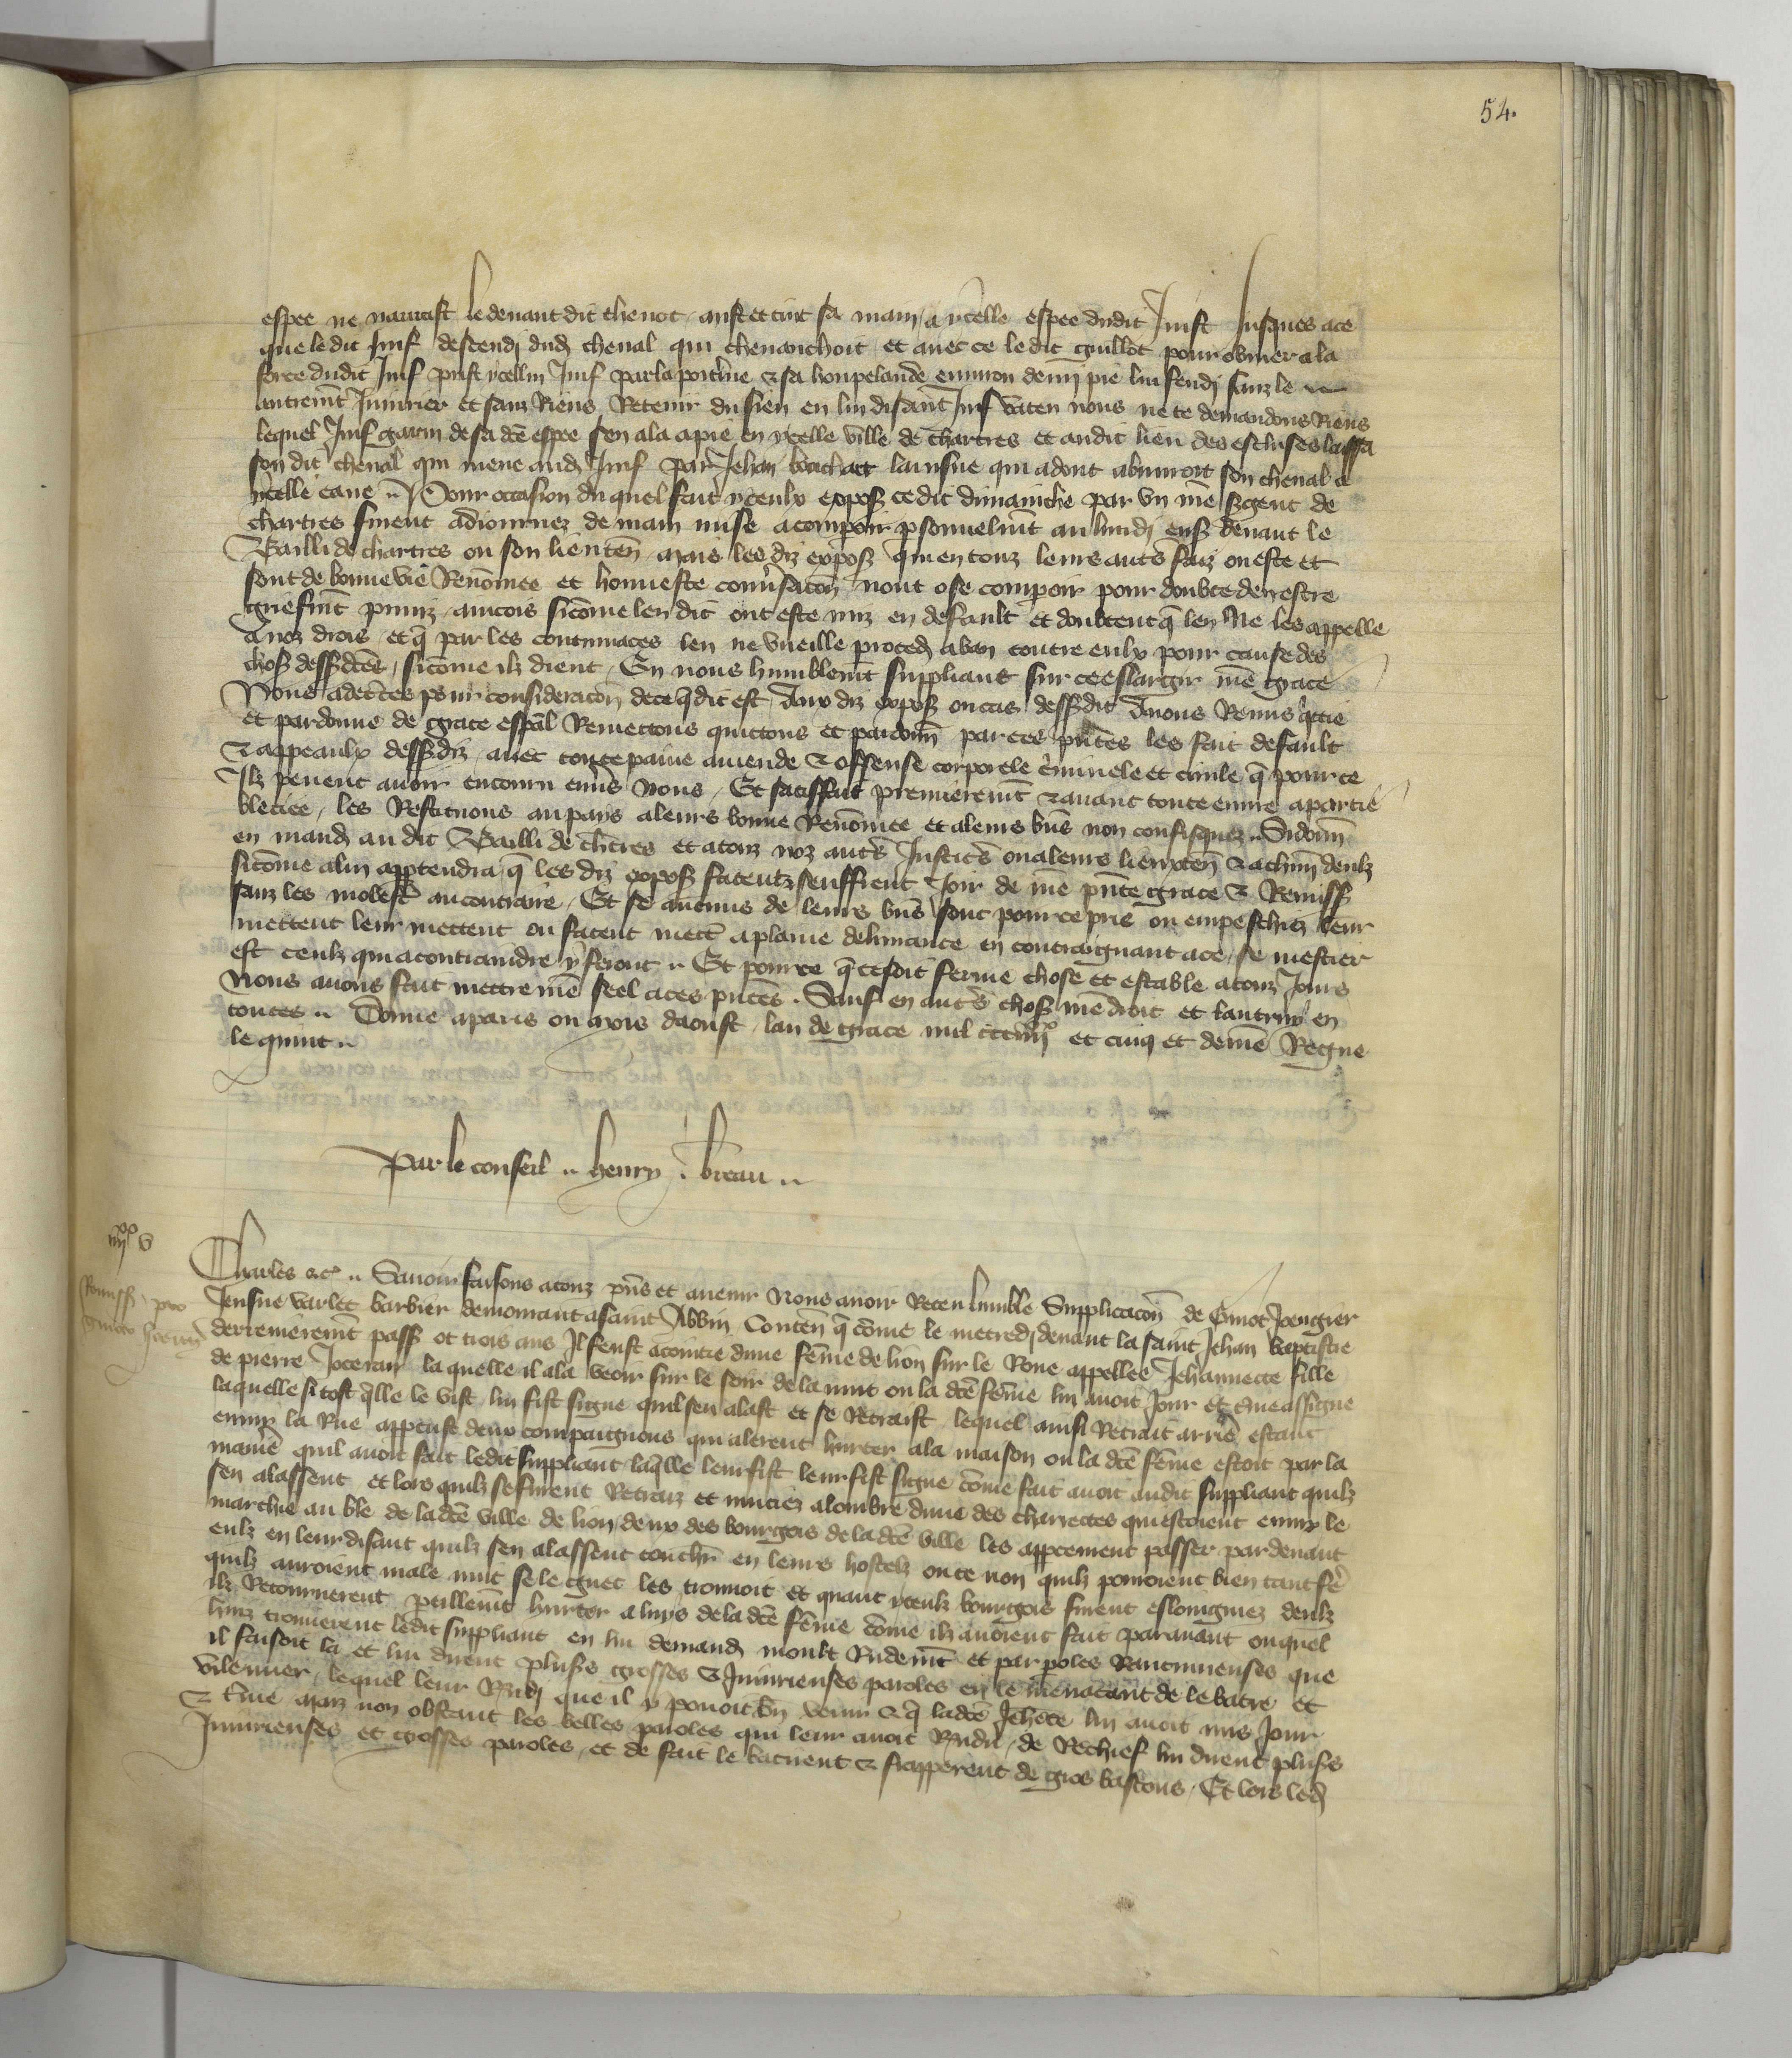 54.
espee ne navrast le devant dit thevot, aust et tint sa main a ycelle espee dudit Juif Jusques a ce
que le dit Juif descendi dud cheval qui chevauchoit et avec ce le dit guillot pour obvier a la
force dudit Juif prist ycellui Juif par la poitrine & sa houpelande environ demi pie lui fendi sanz le
autremt Injurier et sanz Riens Retenir du sien en lui disant Juif va ten nous ne te demandons Riens
lequel Juif garni de sa dce espee sen ala a pie en ycelle ville de chartres et audit lieu des escluses laissa
son dit cheval qui mene aud Juif par Jehan le jeusne qui adont abuvroit son cheval a
ycelle eaue .. Pour occasion du quel fait yceulx expos ce dit dimanche par un nre sgent de
chartres furent adjournez de main mise a compoir psonnelmt au lundi ens devant le
Bailli de chartres ou son lieuten, mais les diz expos qui en touz leurs autres faiz on este et
sont de bonne vie Renommee et honneste conversacon nont ose compoir pour doubte den estre
griefmt puniz, aincois sicome len dit ont este mis en default et doubtent q len Ne les appelle
a noz drois et q par les contumaces len ne vueille proced a ban contre eulx pour cause des
chos dessdces, sicome ilz dient, En nous humblemt suppliant sur ce eslargir nre grace
Nous adecertes pour consideracon de ce q dit est Aux diz expos ou cas dessdit Avons Remis quictie
et pardonne de grace espal Remectons quictons et pardonn par ces pntes les fait default
& appeaulx dessdiz, avec toute paine amende & offense corporele criminele et civile q pour ce
Ilz pevent avoir encouru envs Nous, Et satisffait premieremt & avant toute euvre a partie
blecice, les Restituons au pays a leurs bonne Renommee et a leurs bns non confisquez .. Si donn
en mand au dit Bailli de chres et a touz noz autres Justiciers ou a leurs lieuxten & a chun deulz
sicome a lui apptendra q les diz expos facent & seuffrent Joir de nre pnte grace & Remiss
sanz les molest au contraire, Et se aucuns de leurs bns sont pour ce pris ou empeschiez leur
mettent leur mettent ou facent mectre a plaine delivrance en contraignant a ce, se mestier
est ceulz qui a contraindre y seront .. Et pour ce q ce soit ferme chose et estable a touz Jours
Nous avons fait mettre nre seel a ces pntes. Sauf en autres chos nre droit et lautruy en
toutes .. Donne a paris ou mois daoust, lan de grace mil ccc iiijxx et cinq et de nre Regne
le quint ..
Par le conseil .. henry . breau ..
iiijxx v
Remiss pro
Charles &c .. Savoir faisons a touz pns et avenir Nous avoir Receu lumble Supplicacon de Guiot Joengier
Jeusne varlet barbier demourant a saint Albin Conten q come le mecredi devant la saint Jehan baptistre
derrenieremt pass ot trois ans Il feust acointie dune femme de lion sur le Rone appellee Jehannette fille
de pierre Joceran la quelle il ala veoir sur le soir de la nuit ou la dce femme lui avoit Jour et heure assigne
laquelle si tost qlle le vist lui fist signe quil sen alast et se Retraist lequel ainsi Retrait arriere estant
enmy la Rue appercust deux compaignons qui alerent hurter a la maison ou la dce femme estoit par la
maniere quil avoit fait ledit suppliant laqlle leur fist leur fist signe come fait avoit audit suppliant quilz
sen alassent et lors quilz se furent Retraiz et muciez a lombre dune des charrectes qui estoient enmy le
marchie au ble de la dce ville de lion deux des bourgois de la dce ville les appceurent passer par devant
eulz en leur disant quilz sen alassent couchr en leurs hostelz ou ce non quilz pourroient bien tant fere
quilz auroient male nuit se le guet les trouvoit et quant yceulz bourgois furent eslongniez deulz
ilz Retournerent pteillemt hurter a luys de la dce femme come ilz avoient fait paravant ouquel
huiz trouverent ledit suppliant en lui demand moult Rudemt et par paroles Rancuneuses que
il faisoit la et lui dirent pluss grosses & Injurieuses paroles en le menacant de le batre et
vilenner, lequel leur Rndi que il y povoit bn venir & q ladce Jehete lui avoit mis Jour
& terme maiz non obstant les belles paroles qui leur avoit Rndu, de Rechief lui dirent pluss
Injurieuses et grosses paroles, et de fait le batirent & fraperent de gros bastons, Et lors led